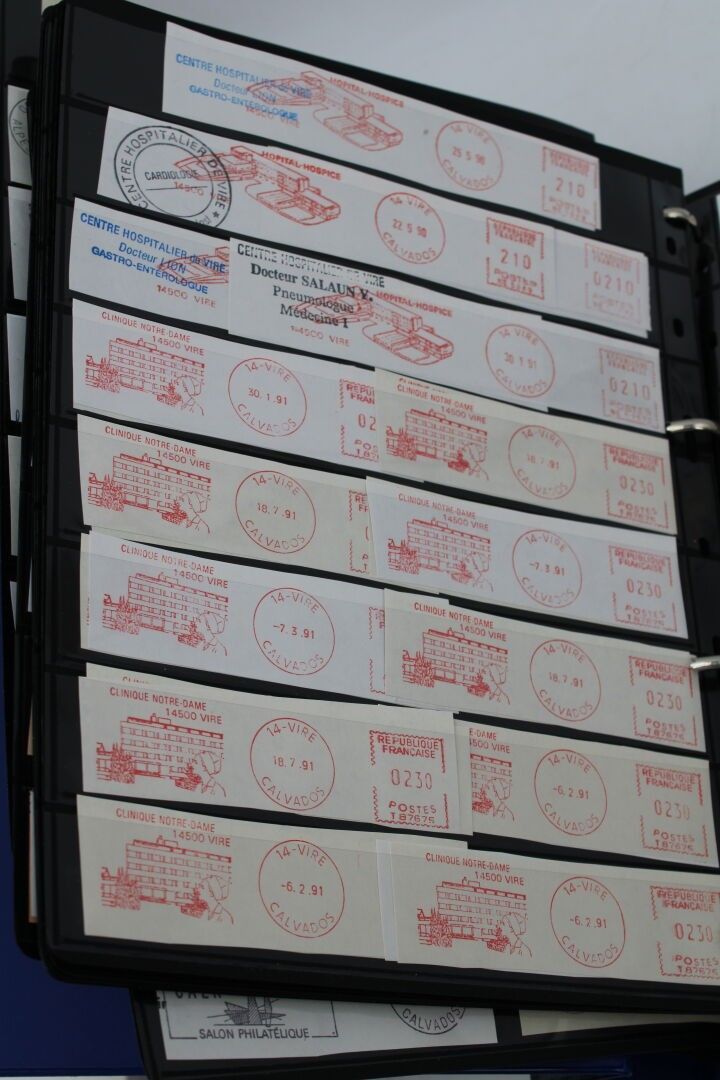 CENTRE HOSPITALIER de VIRE
Docteur LION
GASTRO-ENTÉROLOGUE
14500 VIRE
HOPITAL-HOSPICE
14-VIRE
25 5 90
CALVADOS
REPUBLIQUE
FRANCAISE
210
CENTRE HOSPITALIER DE VIRE
CARDIOLOGIE
14500
HOPITAL-HOSPICE
14-VIRE
22 5 90
CALVADOS
REPUBLIQUE
FRANCAISE
210
POSTES
0210
CENTRE HOSPITALIER de VIRE
Docteur LION
GASTRO-ENTÉROLOGUE
14500 VIRE
CENTRE HOSPITALIER DE VIRE
Docteur SALAUN Y.
Pneumologue
Médecine I
14500 VIRE
HOPITAL-HOSPICE
14-VIRE
30 1 91
CALVADOS
0210
CLINIQUE NOTRE-DAME
14500 VIRE
14-VIRE
30.1.91
CALVADOS
REPU
FR
02
POS
CLINIQUE NOTRE-DAME
14500 VIRE
14-VIRE
18.7.91
CALVADOS
REPUBLIQUE
FRANCAISE
0230
POSTES
T87675
CLINIQUE NOTRE-DAME
14500 VIRE
14-VIRE
18.7.91
CALVADOS
CLINIQUE NOTRE-DAME
14500 VIRE
14-VIRE
-7.3.91
CALVADOS
REPUBLIQUE
FRANCAISE
0230
POSTES
T87675
CLINIQUE NOTRE-DAME
14500 VIRE
14-VIRE
-7.3.91
CALVADOS
CLINIQUE NOTRE-DAME
14500 VIRE
14-VIRE
18.7.91
CALVADOS
REPUBLIQUE
FRANCAISE
0230
POSTES
T87675
CLINIQUE NOTRE-DAME
14500 VIRE
14-VIRE
18.7.91
CALVADOS
REPUBLIQUE
FRANCAISE
0230
POSTES
T87675
E-DAME
4500 VIRE
14-VIRE
-6.2.91
CALVADOS
REPUBLIQUE
FRANCAISE
0230
POSTES
T87675
CLINIQUE NOTRE-DAME
14500 VIRE
14-VIRE
-6.2.91
CALVADOS
CLINIQUE NOTRE-DAME
14500 VIRE
14-VIRE
-6.2.91
CALVADOS
REPUBLIQUE
FRANCAISE
0230
POSTES
T87675
SALON PHILATÉLIQUE
CALVADOS